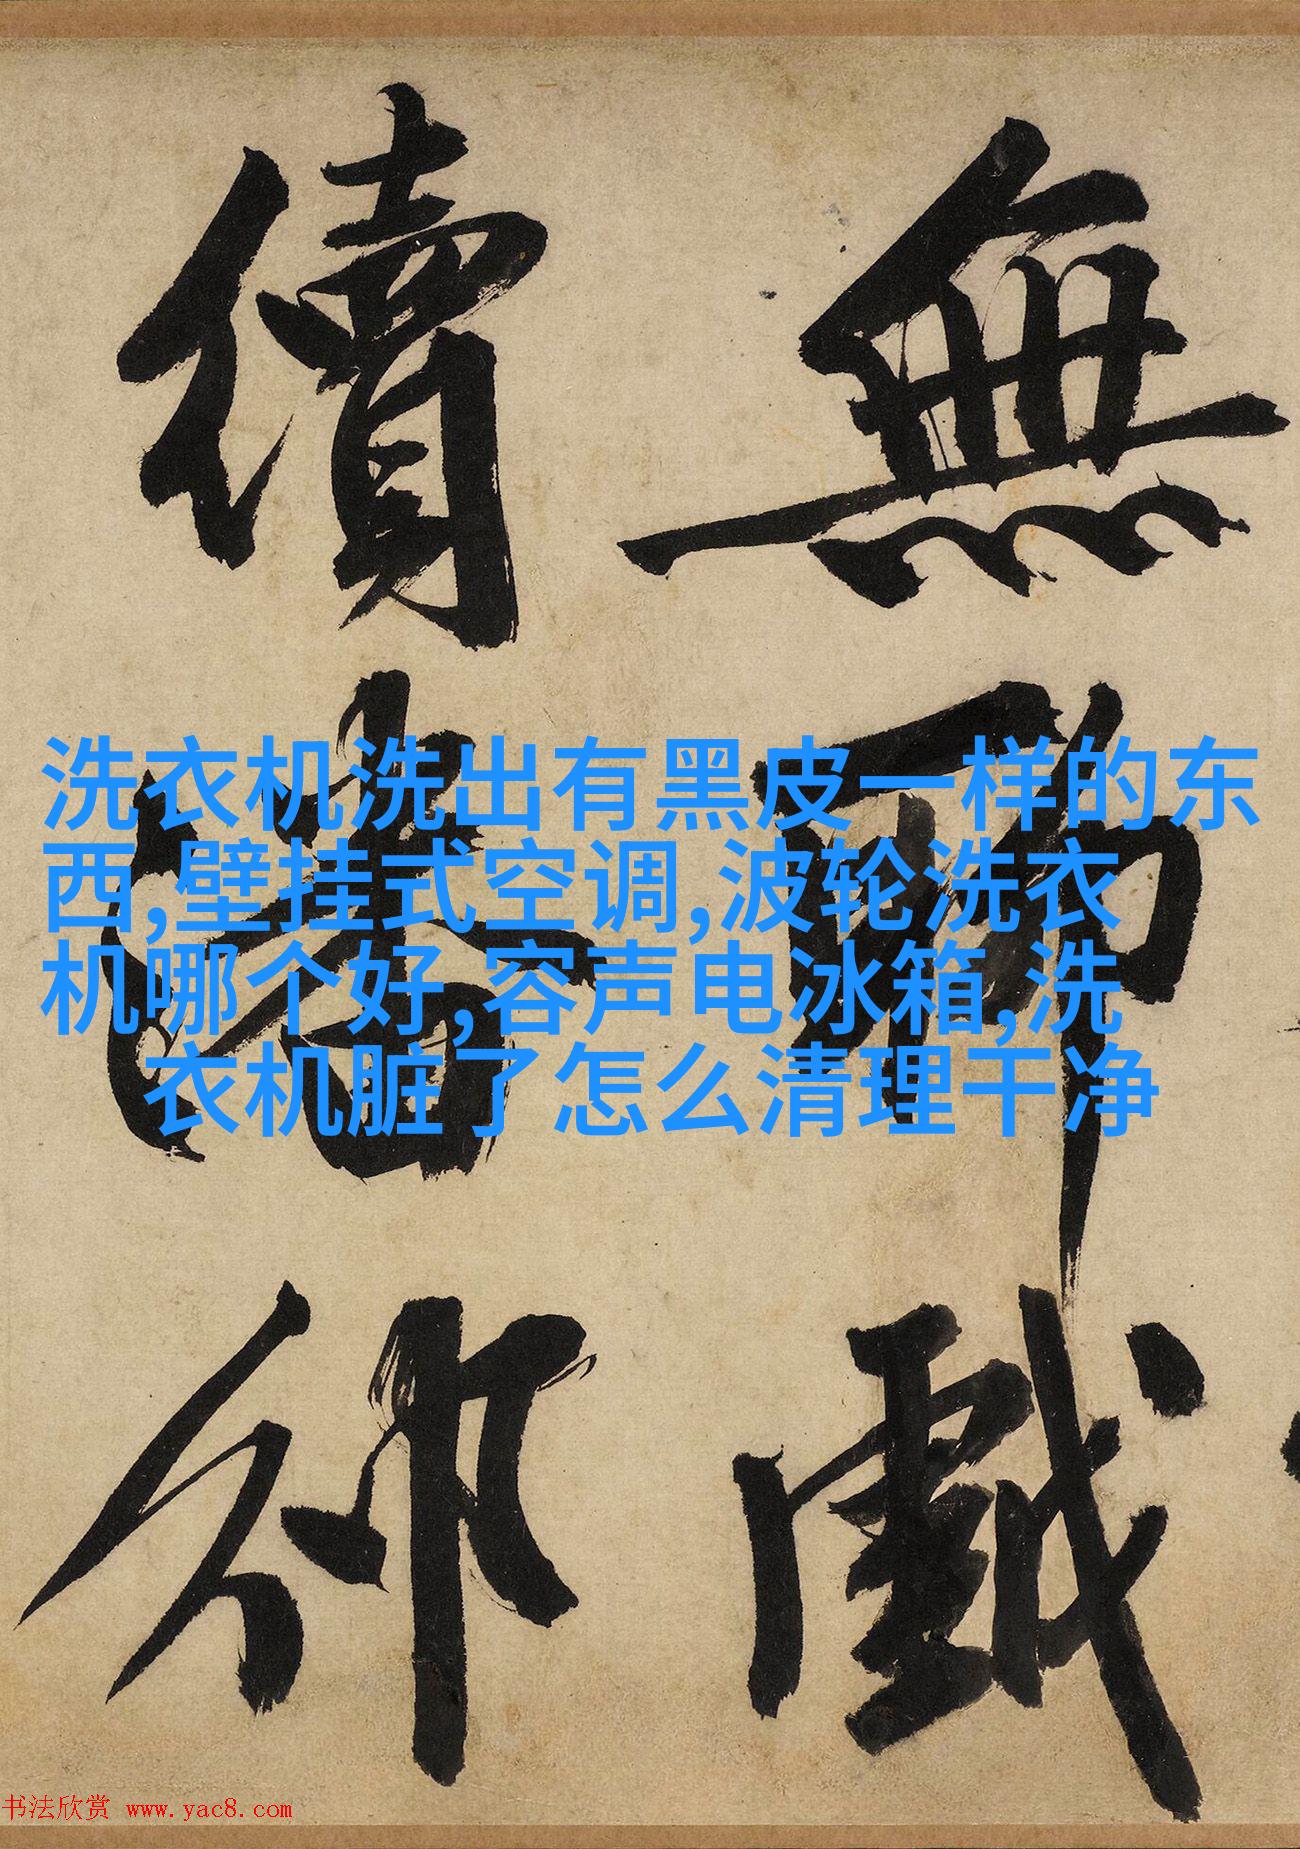 無聊戲
續舊御
洗衣机洗出有黑皮一样的东
西,壁挂式空调,波轮洗衣
机哪个好,容声电冰箱,洗
衣机脏了怎么清理干净
书法欣赏 www.yac8.com